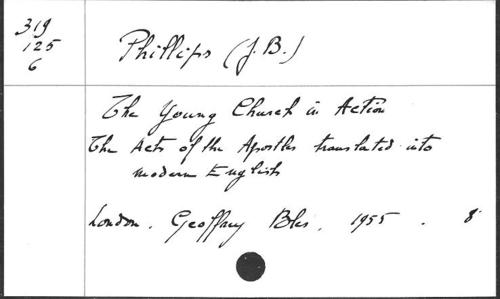 319
125
6
Phillips (J.B.)
The Young Church in Action
The Acts of the Apostles translated into
modern English
London. Geoffrey Bles. 1955. 8°